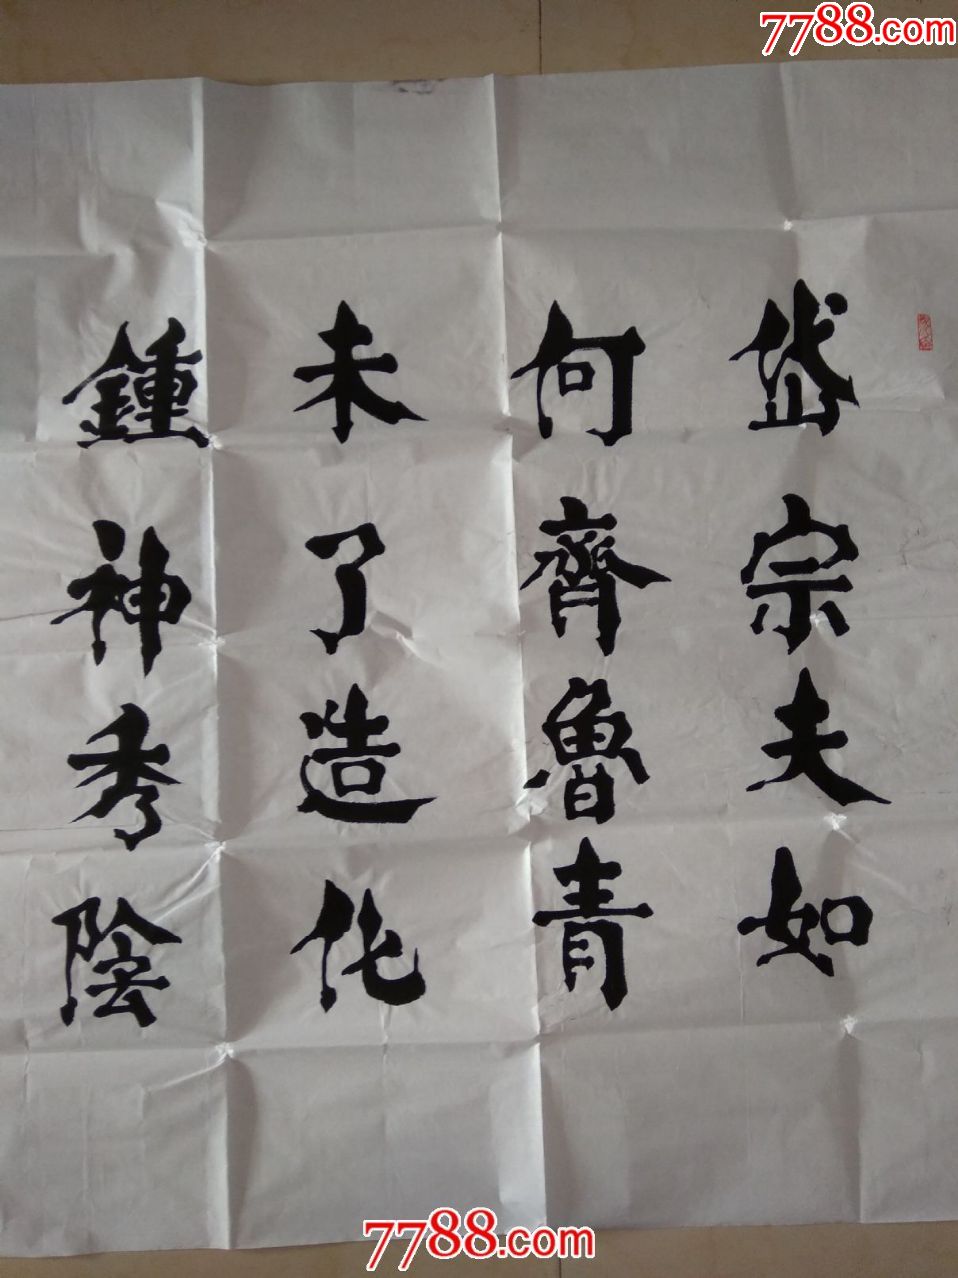 7788.com
岱宗夫如
何齊魯青
未了造化
鍾神秀陰
7788.com